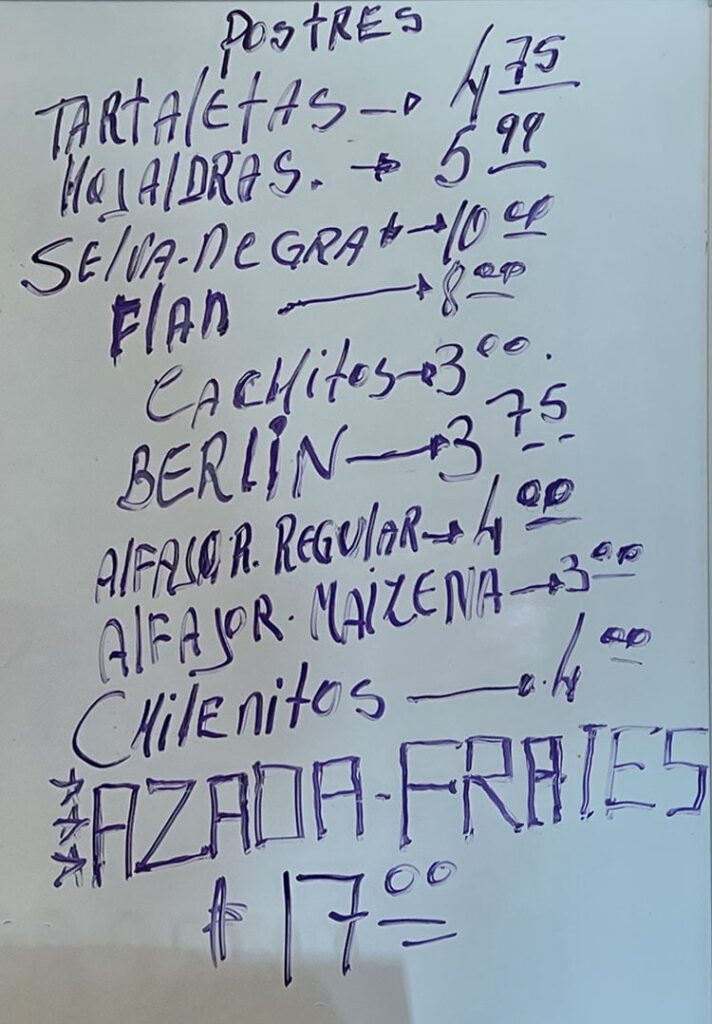 POSTRES
TARTAlETAS → 4 75
HOJAlDRAS. → 5 99
SElVA-NEGRA → 10 00
FlAN → 8 00
CACHitos → 3 00.
BERLIN → 3 75
AlFAJOR. REGUlAR → 4 00
AlFAJOR. MAIZENA → 3 00
CHilEnitos → 4 00
AZADA-FRAIES
$ 17 00